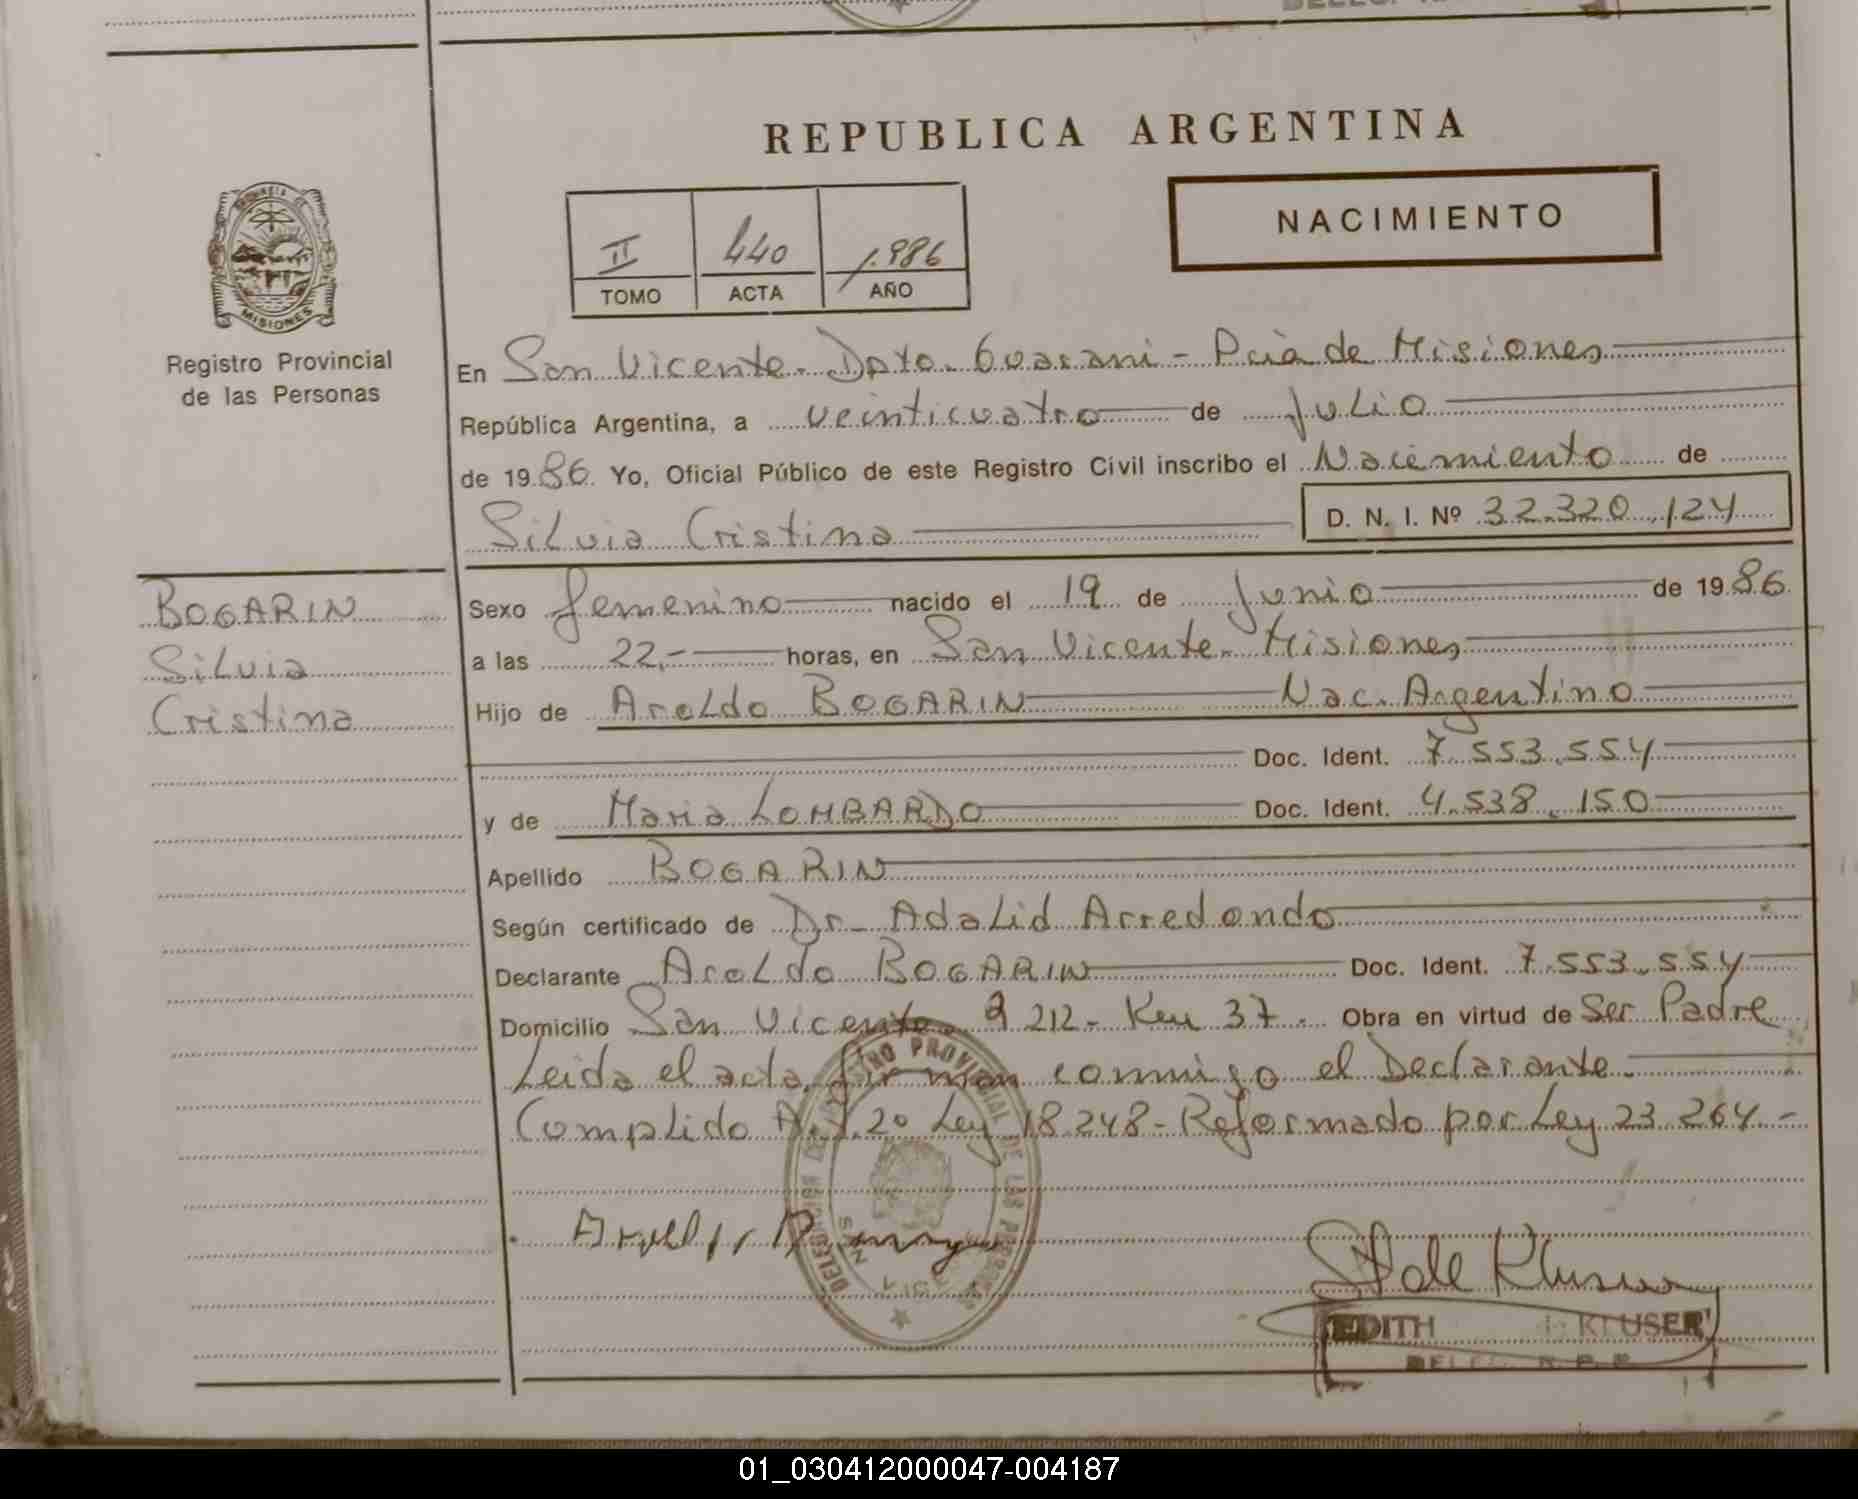 REPUBLICA ARGENTINA
NACIMIENTO
II 440 1.986
TOMO ACTA AÑO
PROVINCIA DE
MISIONES
Registro Provincial
de las Personas
En San Vicente - Dpto. Guarani - Pcia de Misiones
República Argentina, a veinticuatro de Julio
de 1986. Yo, Oficial Público de este Registro Civil inscribo el Nacimiento de
Silvia Cristina D. N. I. Nº 32.320.124
BOGARIN
Silvia
Cristina
Sexo femenino nacido el 19 de Junio de 1986.
a las 22,- horas, en San Vicente - Misiones
Hijo de Aroldo BOGARIN Nac. Argentino
Doc. Ident. 7.553.554
y de Maria LOMBARDO Doc. Ident. 4.538.150
Apellido BOGARIN
Según certificado de Dr - Adalid Arredondo
Declarante Aroldo BOGARIN Doc. Ident. 7.553.554
Domicilio San Vicente - 212 - Km 37 - Obra en virtud de Ser Padre
Leida el acta, firman conmigo el Declarante -
Complido Art. 2º Ley 18.248 - Reformado por Ley 23.264 -
REGISTRO PROVINCIAL DE LAS PERSONAS
EDITH KLUSER
DELEG. R. P. P.
01_030412000047-004187